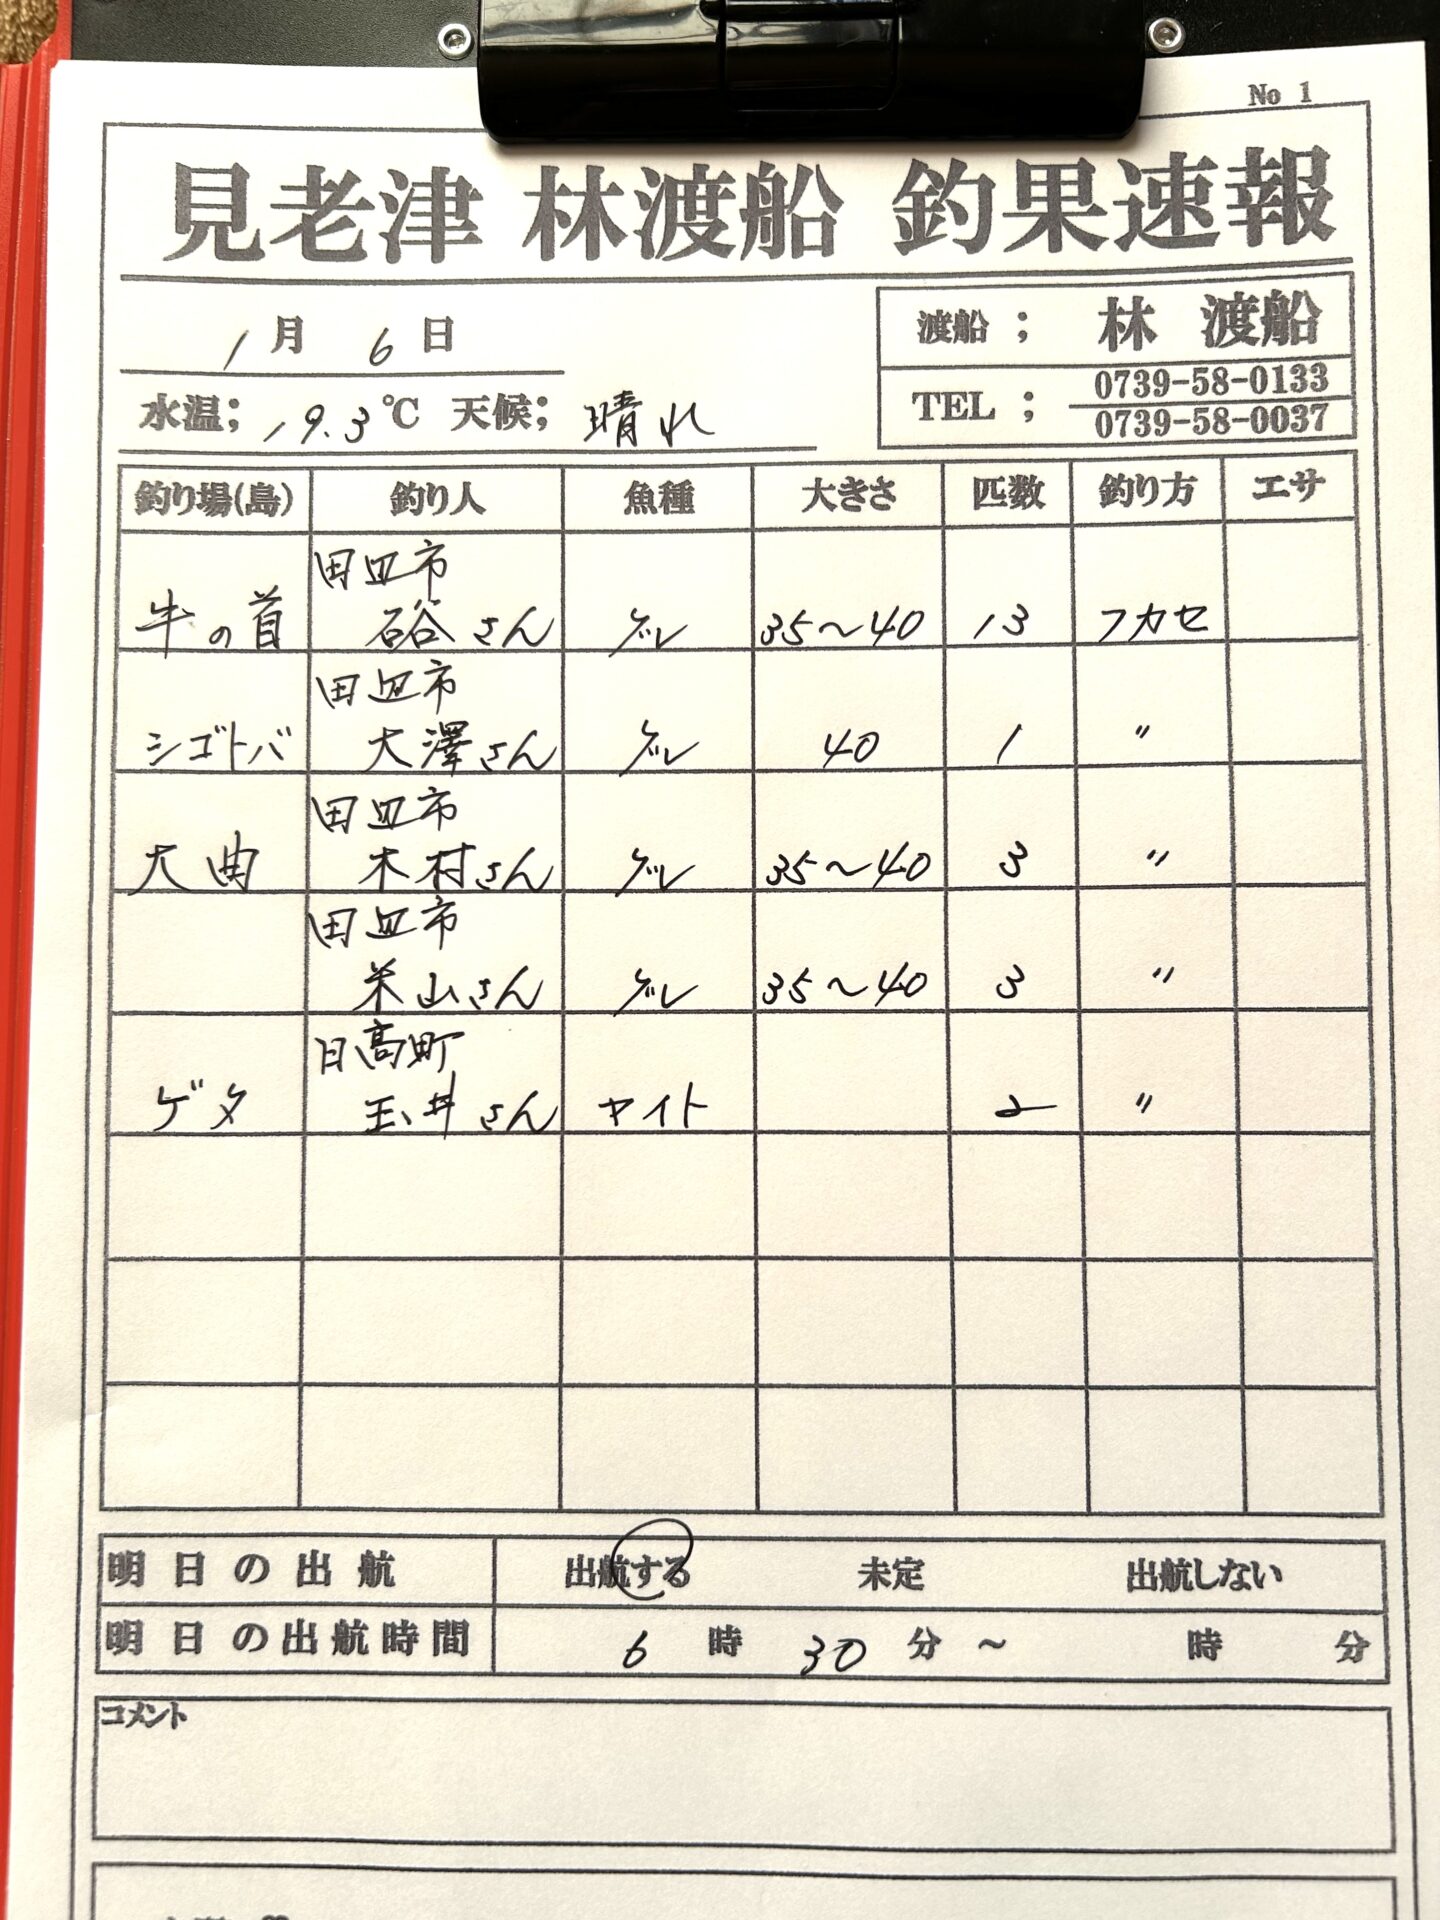 No 1
見老津 林渡船 釣果速報
1月 6日
渡船 ; 林 渡船
水温; 19.3℃ 天候; 晴れ
TEL ; 0739-58-0133
0739-58-0037
釣り場(島) 釣り人 魚種 大きさ 匹数 釣り方 エサ
田辺市
牛の首 硲さん グレ 35〜40 13 フカセ
田辺市
シゴトバ 大澤さん グレ 40 1 〃
田辺市
大曲 木村さん グレ 35〜40 3 〃
田辺市
米山さん グレ 35〜40 3 〃
日高町
ゲタ 玉井さん ヤイト 2 〃
明日の出航 出航する 未定 出航しない
明日の出航時間 6時30分〜 時 分
コメント